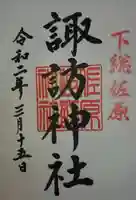 下総佐原
諏訪神社
令和二年三月十五日